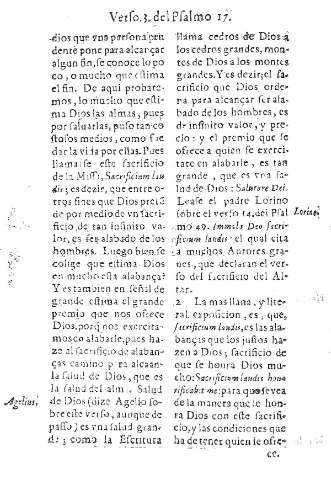 Verso. 3. del Psalmo 17.
dios que vna persona pru
dente pone para alcançar
algun fin, se conoce lo po
co, o mucho que estima
el fin. De aqui probare-
mos, lo mucho que esti-
ma Dios las almas, pues
por saluarlas, puso tan co-
stosos medios, como fue
dar la vida por ellas. Pues
llamase este sacrificio
de la Missa, Sacrificium lau
dis; es dezir, que entre o-
tros fines que Dios pretē
de por medio de vn sacri-
ficio de tan infinito va-
lor, es ser alabado de los
hombres. Luego bien se
colige que estima Dios
en mucho esta alabança?
Y es tambien en señal de
grande estima el grande
premio que nos ofrece
Dios, porq̃ nos exercita-
mos en alabarle, pues ha-
ze al sacrificio de alaban-
ças camino para alcançar
la salud de Dios, que es
la salud del alma. Salud
Agelius.
de Dios (dize Agelio so-
bre este verso, aunque de
passo) es vna salud gran-
de; como la Escritura
llama cedros de Dios a
los cedros grandes, mon-
tes de Dios a los montes
grandes. Y es dezir; el sa-
crificio que Dios orde-
na para alcançar ser ala-
bado de los hombres, es
de infinito valor, y pre-
cio: y el premio que se
ofrece a quien se exerci-
tare en alabarle, es tan
grande, que es vna sa-
lud de Dios: Salutare Dei.
Lease el padre Lorino
Lorino
sobre el verso 14. del Psal
mo 49. Immola Deo sacri-
ficium laudis: el qual cita
a muchos Autores gra-
ues, que declaran el ver-
so del sacrificio del Al-
tar.
2 La mas llana, y lite-
ral exposicion, es, que,
sacrificium laudis, es las ala-
banças que los justos ha-
zen a Dios; sacrificio de
que se honra Dios mu-
cho: Sacrificium laudis hono
rificabit me: para que se vea
de la manera que se hon-
ra Dios con este sacrifi-
cio, y las condiciones que
ha de tener quien le ofre-
ce.